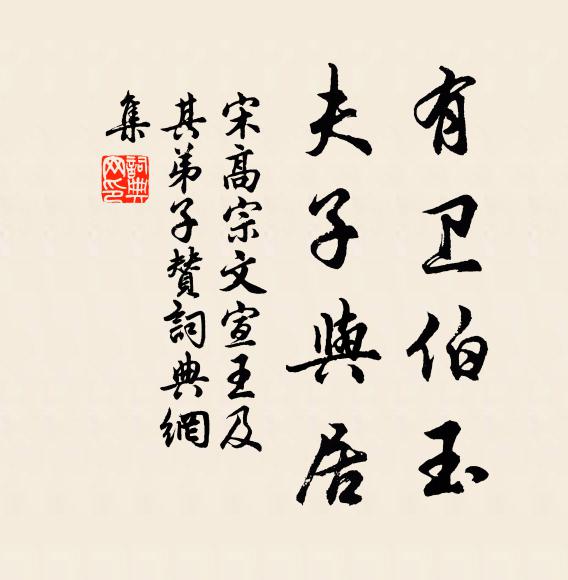 有卫伯玉
夫子與居
宋高宗文宣王及
其弟子贊詞典網
集
詞典
网印